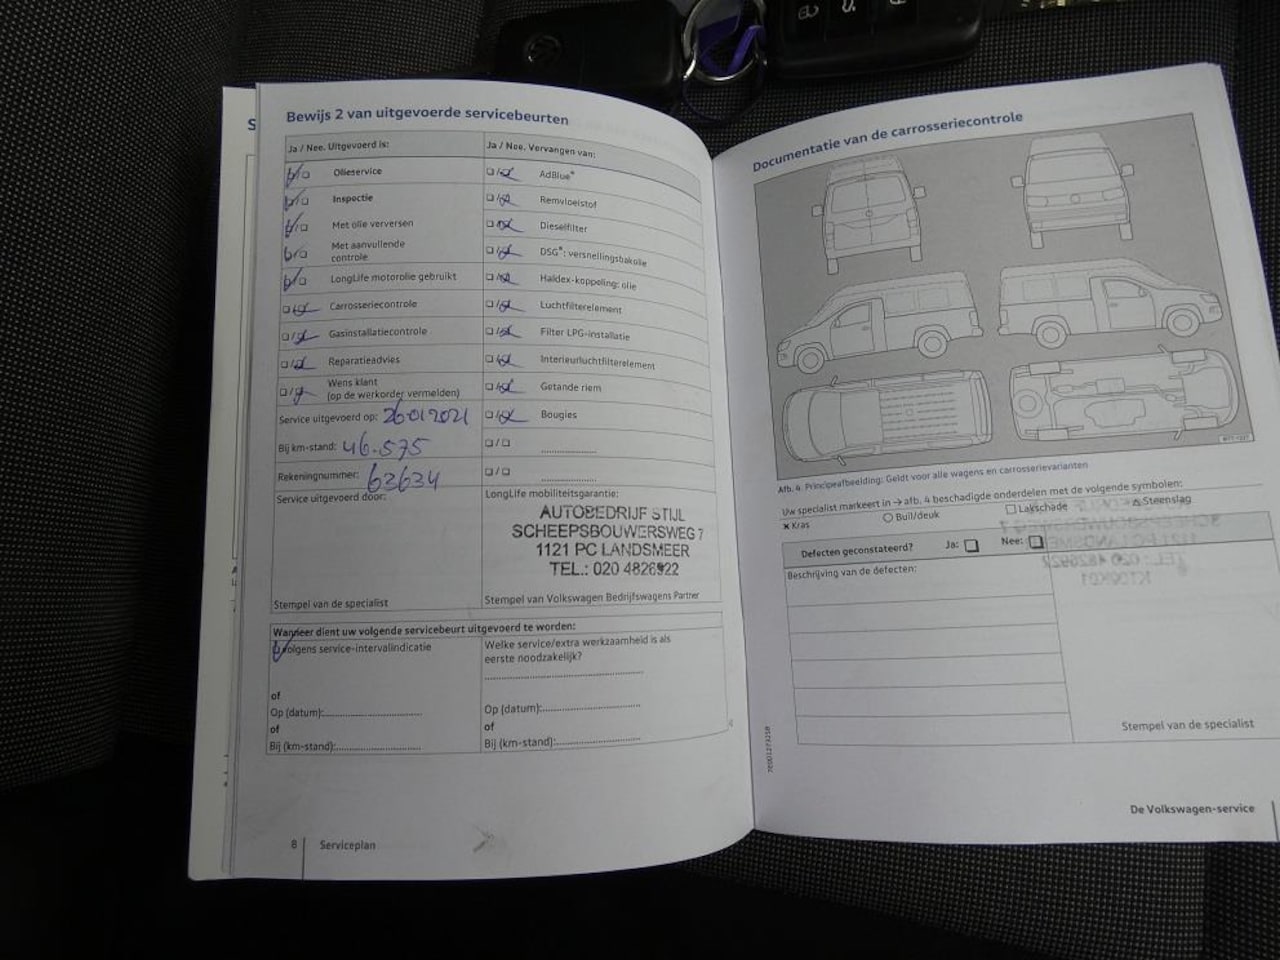 Bewijs 2 van uitgevoerde servicebeurten
Ja / Nee. Uitgevoerd is:
Olieservice
Inspectie
Met olie verversen
Met aanvullende
controle
LongLife motorolie gebruikt
Carrosseriecontrole
Gasinstallatiecontrole
Reparatieadvies
Wens klant
(op de werkorder vermelden)
Service uitgevoerd op: 26 01 2021
Bij km-stand: 46.575
Rekeningnummer: 63634
Service uitgevoerd door:
Stempel van de specialist
Ja / Nee. Vervangen van:
AdBlue®
Remvloeistof
Dieselfilter
DSG®: versnellingsbakolie
Haldex-koppeling: olie
Luchtfilterelement
Filter LPG-installatie
Interieurluchtfilterelement
Getande riem
Bougies
LongLife mobiliteitsgarantie:
AUTOBEDRIJF STIJL
SCHEEPSBOUWERSWEG 7
1121 PC LANDSMEER
TEL.: 020 4826922
Stempel van Volkswagen Bedrijfswagens Partner
Wanneer dient uw volgende servicebeurt uitgevoerd te worden:
volgens service-intervalindicatie
of
Op (datum):
of
Bij (km-stand):
Welke service/extra werkzaamheid is als
eerste noodzakelijk?
Op (datum):
of
Bij (km-stand):
8 Serviceplan
Documentatie van de carrosseriecontrole
Afb. 4 Principeafbeelding: Geldt voor alle wagens en carrosserievarianten
Uw specialist markeert in → afb. 4 beschadigde onderdelen met de volgende symbolen:
× Kras
Buil/deuk
Lakschade
Steenslag
Defecten geconstateerd? Ja: Nee:
Beschrijving van de defecten:
Stempel van de specialist
De Volkswagen-service